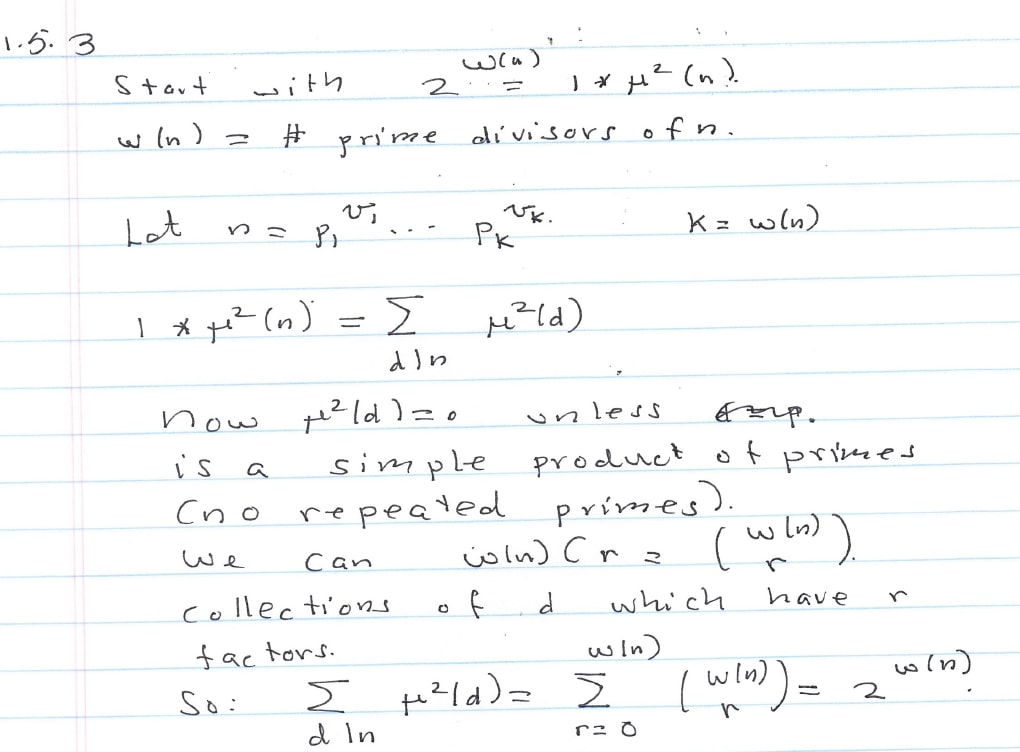 1.5.3
Start with 2^{ω(n)} = 1 * μ²(n).
ω(n) = # prime divisors of n.
Let n = p₁^{v₁} ... p_K^{v_K}. K = ω(n)
1 * μ²(n) = Σ_{d|n} μ²(d)
Now μ²(d) = 0 unless
is a simple product of primes
(no repeated primes).
We can ω(n) C r = (ω(n) r).
collections of d which have r
factors.
So: Σ_{d|n} μ²(d) = Σ_{r=0}^{ω(n)} (ω(n) r) = 2^{ω(n)}.